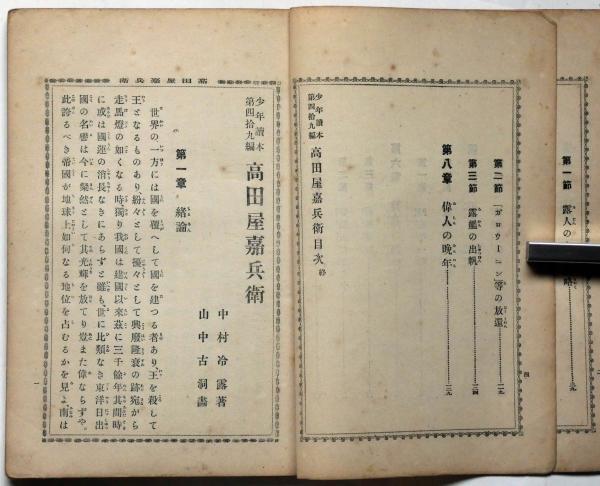 第一節 露人の
略
三九
第二節 「ゴロウーニン」等の放還
二一九
第三節 露艦の出帆
二二四
第八章 偉人の晩年
二二九
少年讀本
第四拾九編
高田屋嘉兵衛目次 終
四
高田屋嘉兵衛
少年讀本
第四拾九編
高田屋嘉兵衛
中村冷露著
山中古洞畵
第一章 緒論
世界の一方には國を覆へして國を建つる者あり、王を殺して
王となるものあり、紛々として擾々として興廢隆衰の跡宛がら
走馬燈の如くなる時、獨り我國は建國以來茲に三千餘年、其間時
に或は國運の消長なきにあらずと雖も、世に比類なき東洋日出
國の名譽は今に燦然として其光輝を放てり、豈また偉ならずや。
此誇るべき帝國が地球上如何なる地位を占むるかを見よ、南は
一